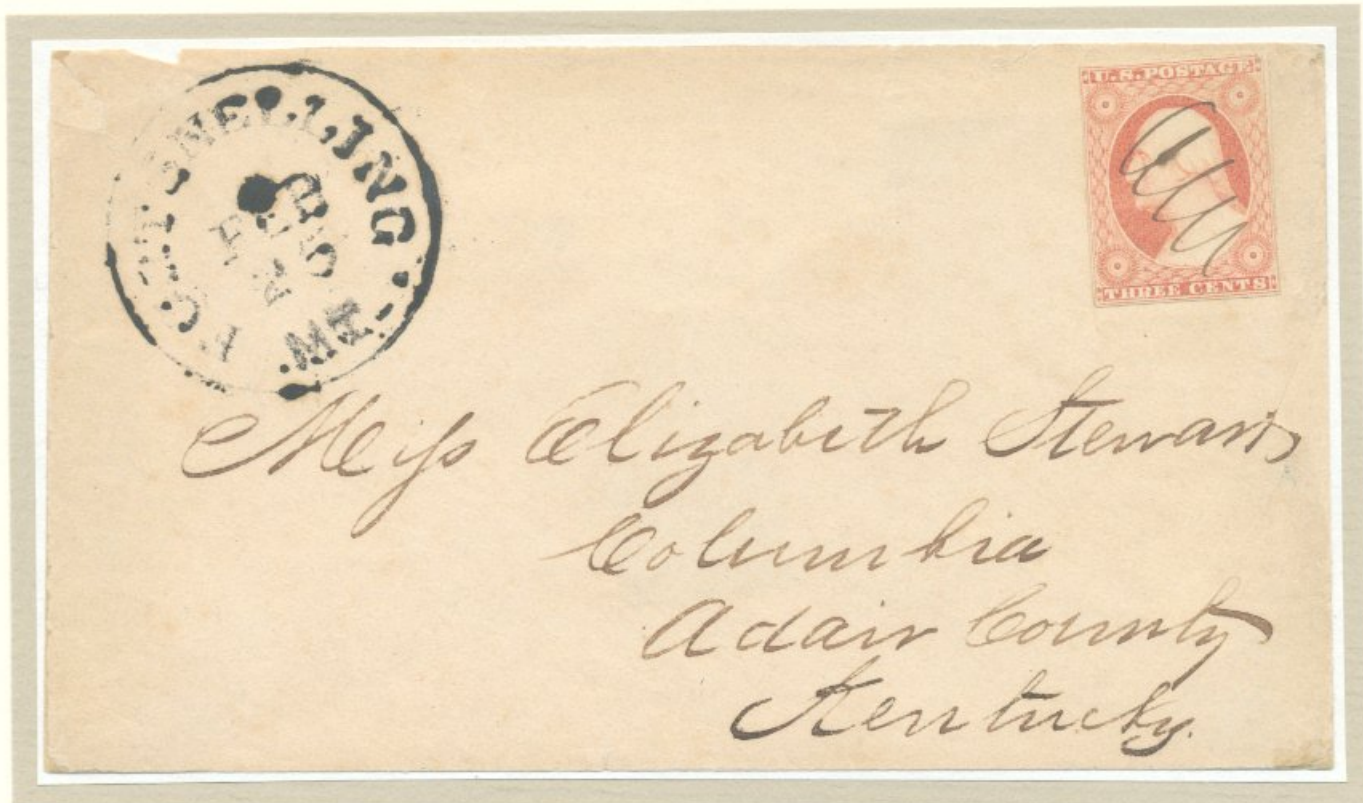 FORT SNELLING.
FEB
25
U.S. POSTAGE
THREE CENTS
Miss Elizabeth Stewart
Columbia
Adair County
Kentucky.